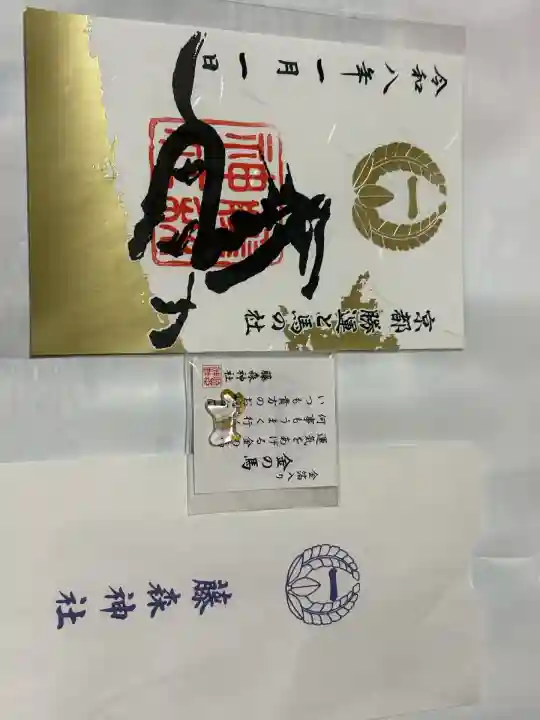 令和八年一月一日
一
京都 勝運と馬の社
金箔入り
金の馬
運気をあげる金の
何事もうまく行
いつも貴方のお
藤森神社
一
藤森神社